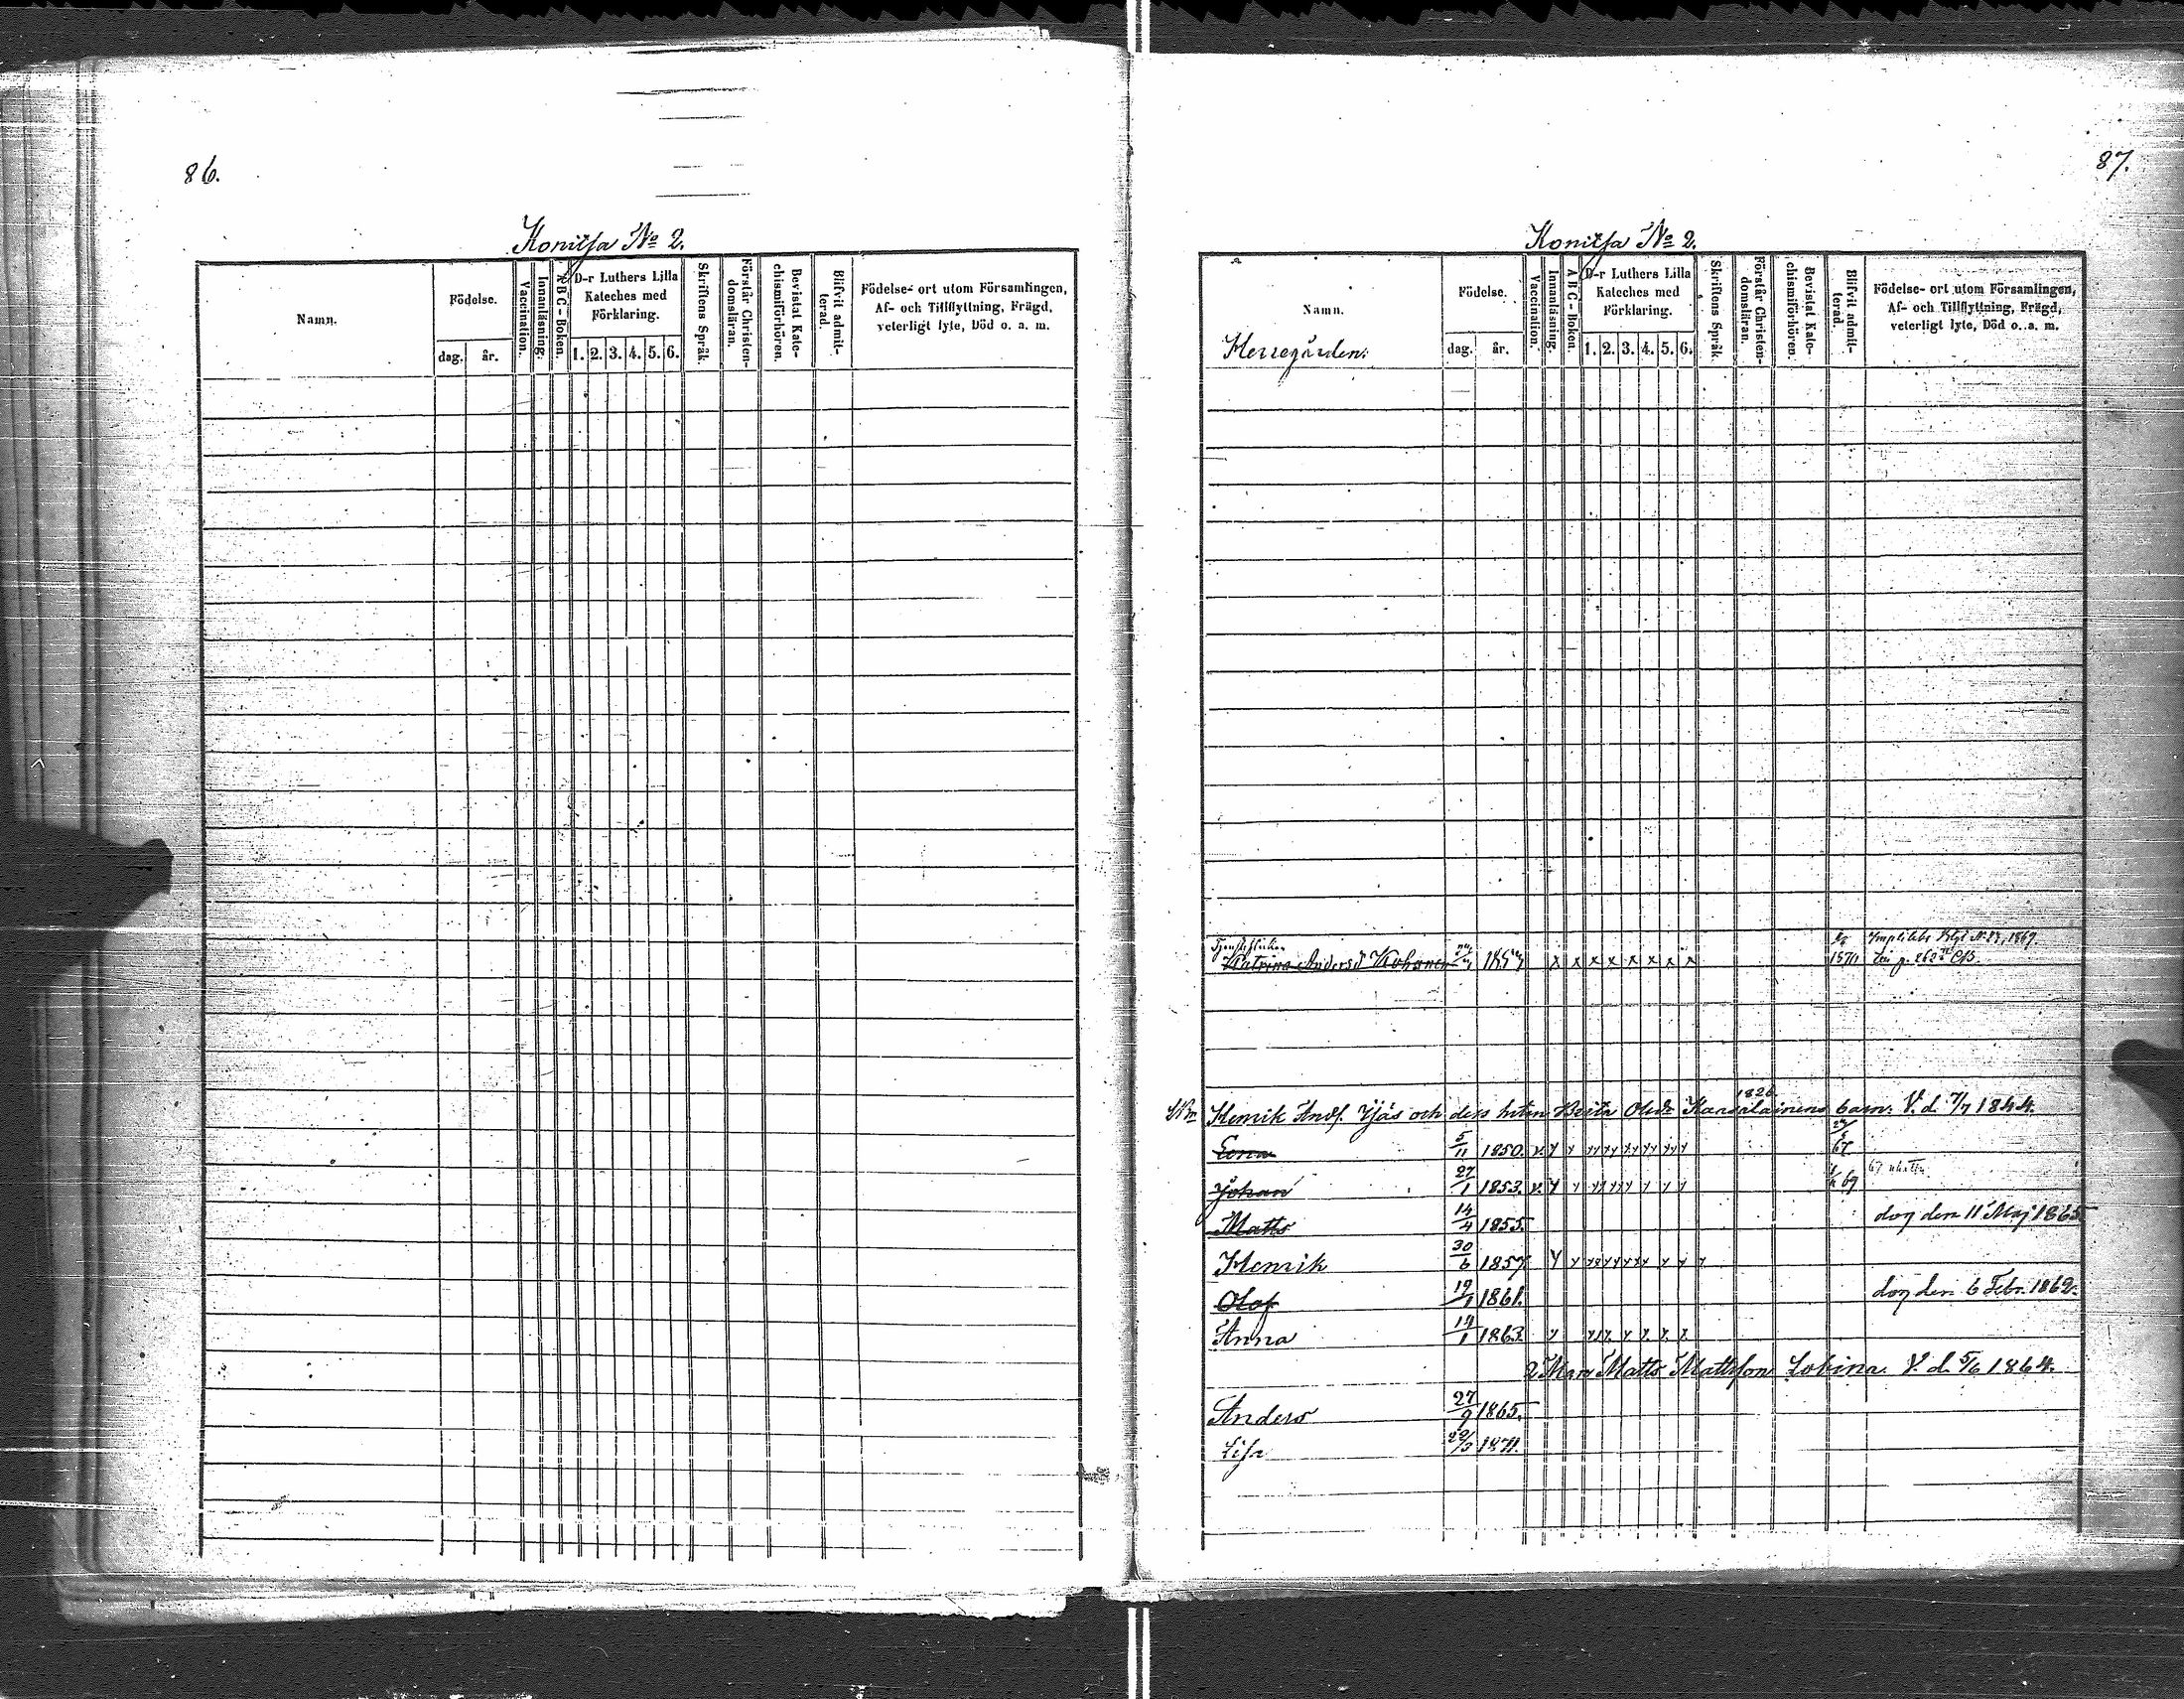 86.
Konitsa No 2.
Namn.
Födelse.
dag. år.
Vaccination.
Innanläsning.
A B C - Boken.
D-r Luthers Lilla
Kateches med
Förklaring.
1. 2. 3. 4. 5. 6.
Skriftens Språk.
Förstår Christen-
domsläran.
Bevistat Kate-
chismiförhören.
Blifvit admit-
terad.
Födelse- ort utom Församlingen,
Af- och Tillflyttning, Frägd,
veterligt lyte, Död o. a. m.
87.
Konitsa No 2.
Namn.
Herregården.
Födelse.
dag. år.
Vaccination.
Innanläsning.
A B C - Boken.
D-r Luthers Lilla
Kateches med
Förklaring.
1. 2. 3. 4. 5. 6.
Skriftens Språk.
Förstår Christen-
domsläran.
Bevistat Kate-
chismiförhören.
Blifvit admit-
terad.
Födelse- ort utom Församlingen,
Af- och Tillflyttning, Frägd,
veterligt lyte, Död o. a. m.
Katrina Andersdr x x x x x x x x 1870
1826
Henrik Andf. och dess Brita Olsdr barn. V. d. 7/7 1844.
5/11 1850. 67
Johan 27/1 1853. 69
Matts 14/4 1855. dog den 11 Maj 1865
Henrik 30/6 1857
Olof 19/1 1861. dog den 6 Febr. 1862.
Anna 19/1 1863.
2 Man Matts Mattsson V. d. 5/6 1864.
Anders 27/9 1865.
Lisa 1871.